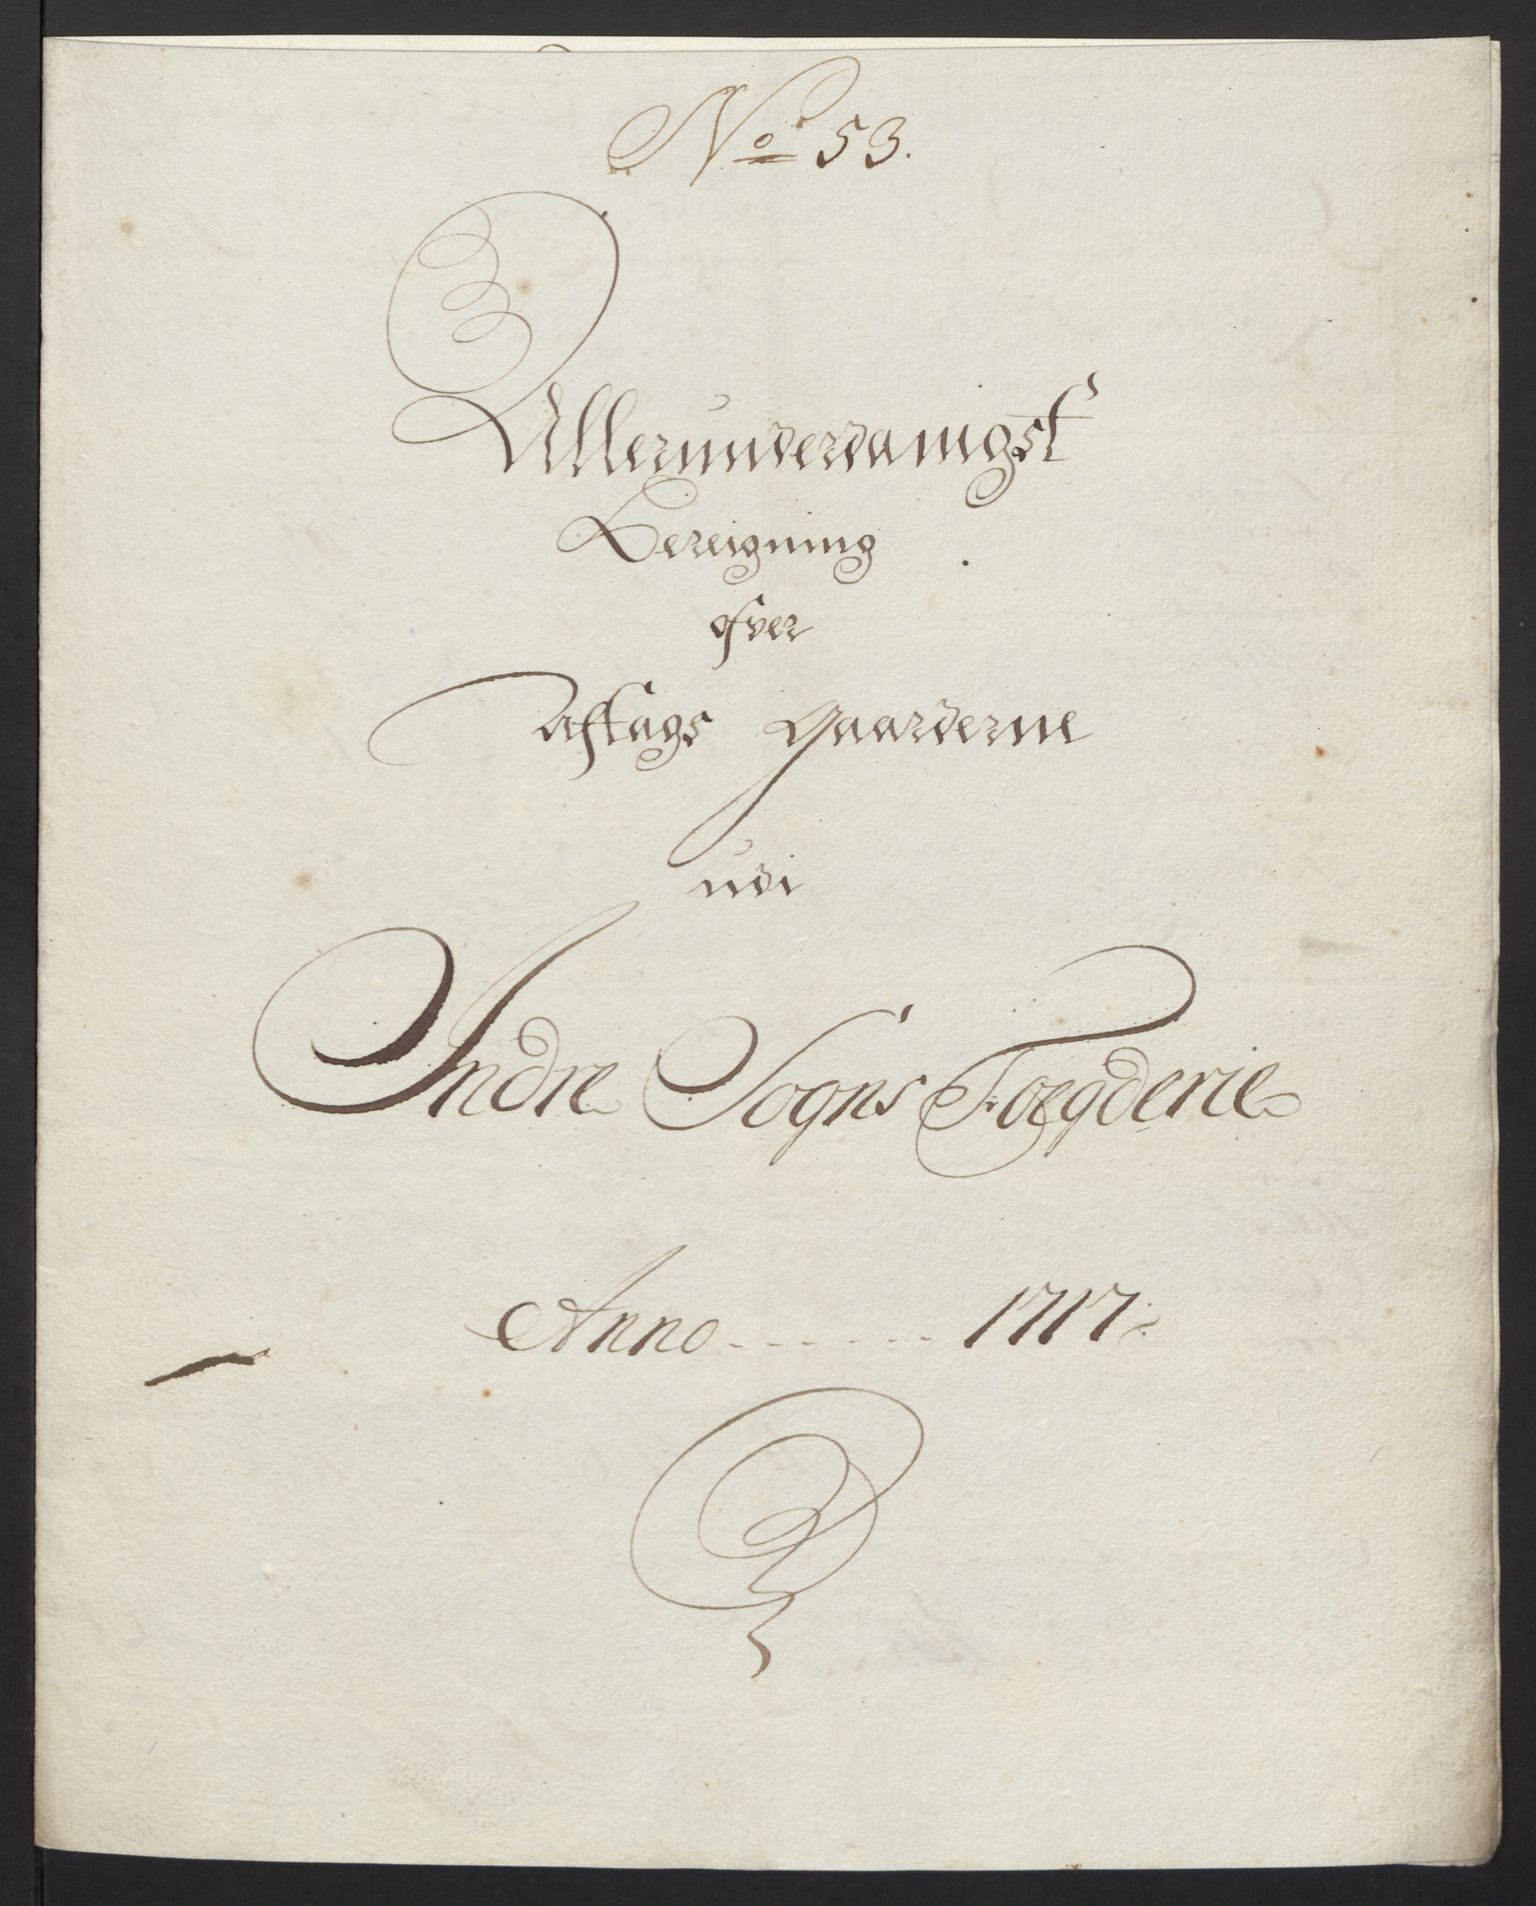 No 53.
Allerunderdanigst
Bereigning
ofver
Aftags Gaarderne
udi
Indre Sogns Foegderie
Anno ....... 1717.